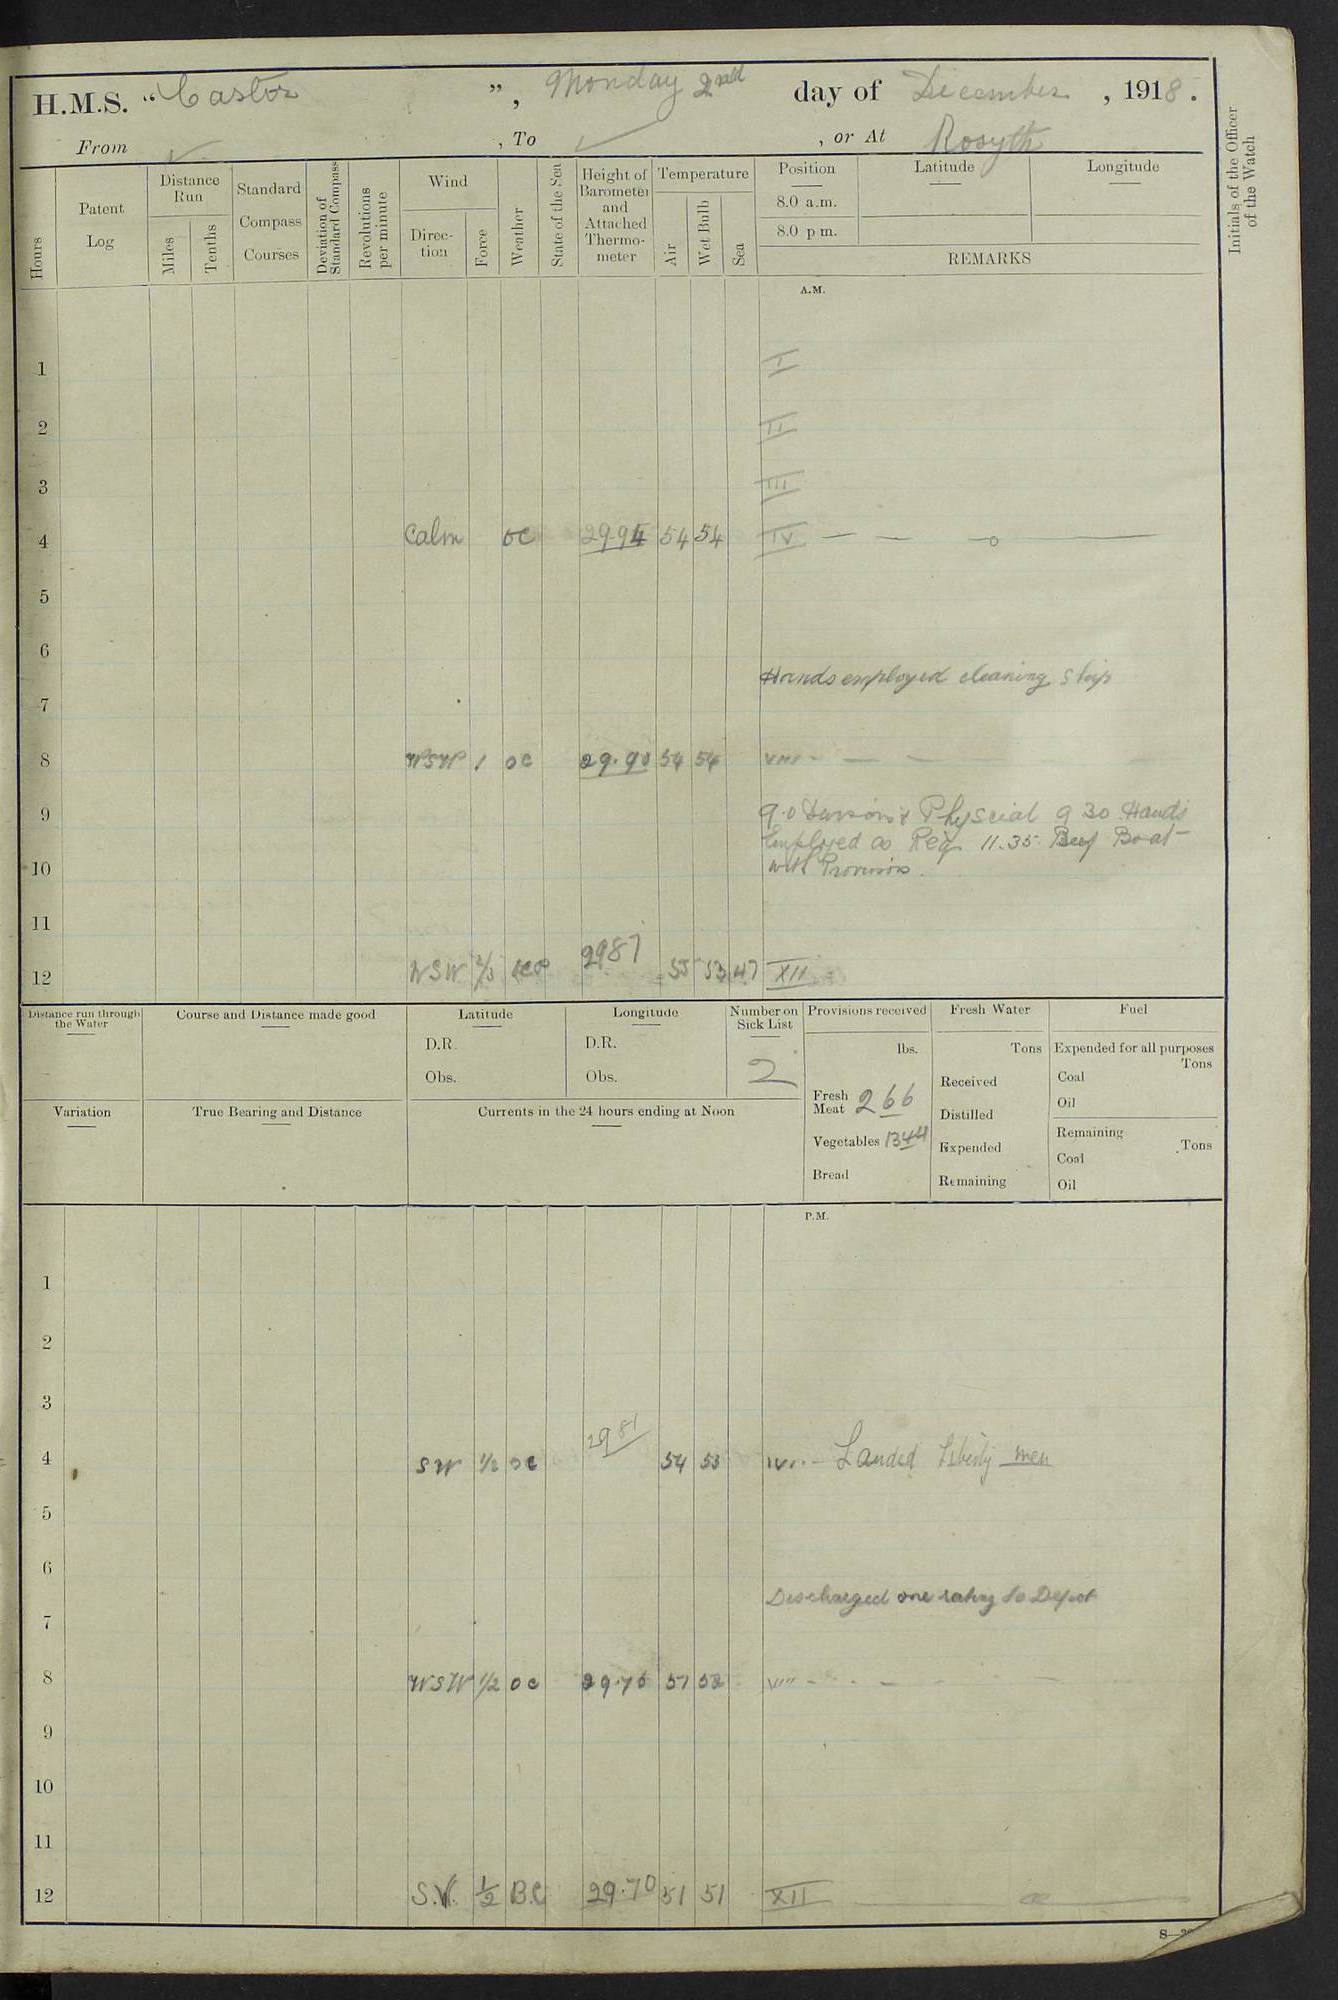 H.M.S. "Castor", Monday 2nd day of December, 1918.
From , To , or At Rosyth
Hours
Patent Log
Distance Run
Miles
Tenths
Standard Compass Courses
Deviation of Standard Compass
Revolutions per minute
Wind
Direction
Force
Weather
State of the Sea
Height of Barometer and Attached Thermometer
Temperature
Air
Wet Bulb
Sea
Position
8.0 a.m.
8.0 p.m.
Latitude
Longitude
REMARKS
Initials of the Officer of the Watch
A.M.
1 I
2 II
3 III
4 Calm oc 29.94 54 54 IV
5
6
Hands employed cleaning ship
7
8 WSW 1 oc 29.90 54 54 VIII
9 9.0 Physcial 9 30 Hands
Employed as Req. 11.35. Beef Boat
10 with Provisions.
11
12 WSW 2/3 29 87 55 53 47 XII
Distance run through the Water
Course and Distance made good
Latitude
D.R.
Obs.
Longitude
D.R.
Obs.
Number on Sick List
2
Provisions received
lbs.
Fresh Meat 266
Vegetables 1344
Bread
Fresh Water
Tons
Received
Distilled
Expended
Remaining
Fuel
Expended for all purposes
Tons
Coal
Oil
Remaining
Tons
Coal
Oil
Variation
True Bearing and Distance
Currents in the 24 hours ending at Noon
P.M.
1
2
3
4 SW 1/2 oc 29 81 54 53 IV Landed Liberty men
5
6
Discharged one rating to Depot
7
8 WSW 1/2 oc 29.76 51 52 VIII
9
10
11
12 S.W. 1/2 B.C 29.70 51 51 XII